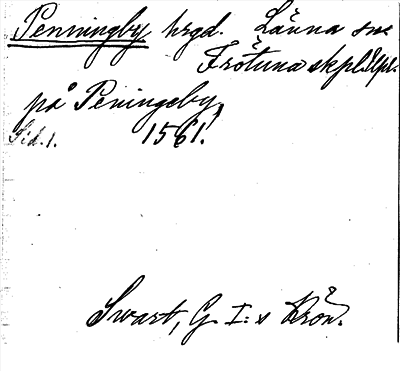 Penningby hrgd. Länna sn
Frötuna skpl. Upl.
på Peningeby,
Sid. 1. 1561.
Swart, G. I:s Krön.